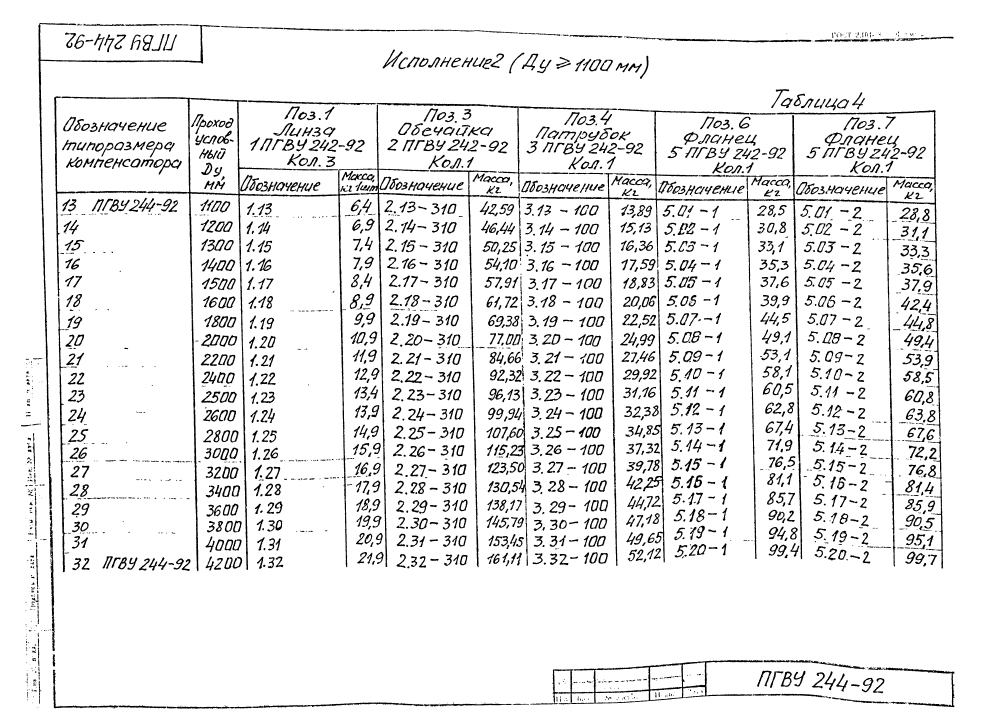 ПГВУ 244-92
Исполнение 2 (Ду ≥ 1100 мм)
Таблица 4
Обозначение типоразмера компенсатора | Проход условный Ду, мм | Поз. 1 Линза 1 ПГВУ 242-92 Кол. 3 | Поз. 3 Обечайка 2 ПГВУ 242-92 Кол. 1 | Поз. 4 Патрубок 3 ПГВУ 242-92 Кол. 1 | Поз. 6 Фланец 5 ПГВУ 242-92 Кол. 1 | Поз. 7 Фланец 5 ПГВУ 242-92 Кол. 1
Обозначение | Масса, кг 1шт | Обозначение | Масса, кг | Обозначение | Масса, кг | Обозначение | Масса, кг | Обозначение | Масса, кг
13 ПГВУ 244-92 | 1100 | 1.13 | 6,4 | 2.13-310 | 42,59 | 3.13-100 | 13,89 | 5.01-1 | 28,5 | 5.01-2 | 28,8
14 | 1200 | 1.14 | 6,9 | 2.14-310 | 46,44 | 3.14-100 | 15,13 | 5.02-1 | 30,8 | 5.02-2 | 31,1
15 | 1300 | 1.15 | 7,4 | 2.15-310 | 50,25 | 3.15-100 | 16,36 | 5.03-1 | 33,1 | 5.03-2 | 33,3
16 | 1400 | 1.16 | 7,9 | 2.16-310 | 54,10 | 3.16-100 | 17,59 | 5.04-1 | 35,3 | 5.04-2 | 35,6
17 | 1500 | 1.17 | 8,4 | 2.17-310 | 57,91 | 3.17-100 | 18,83 | 5.05-1 | 37,6 | 5.05-2 | 37,9
18 | 1600 | 1.18 | 8,9 | 2.18-310 | 61,72 | 3.18-100 | 20,06 | 5.06-1 | 39,9 | 5.06-2 | 42,4
19 | 1800 | 1.19 | 9,9 | 2.19-310 | 69,38 | 3.19-100 | 22,52 | 5.07-1 | 44,5 | 5.07-2 | 44,8
20 | 2000 | 1.20 | 10,9 | 2.20-310 | 77,00 | 3.20-100 | 24,99 | 5.08-1 | 49,1 | 5.08-2 | 49,4
21 | 2200 | 1.21 | 11,9 | 2.21-310 | 84,66 | 3.21-100 | 27,46 | 5.09-1 | 53,1 | 5.09-2 | 53,9
22 | 2400 | 1.22 | 12,9 | 2.22-310 | 92,32 | 3.22-100 | 29,92 | 5.10-1 | 58,1 | 5.10-2 | 58,5
23 | 2500 | 1.23 | 13,4 | 2.23-310 | 96,13 | 3.23-100 | 31,16 | 5.11-1 | 60,5 | 5.11-2 | 60,8
24 | 2600 | 1.24 | 13,9 | 2.24-310 | 99,94 | 3.24-100 | 32,38 | 5.12-1 | 62,8 | 5.12-2 | 63,8
25 | 2800 | 1.25 | 14,9 | 2.25-310 | 107,60 | 3.25-100 | 34,85 | 5.13-1 | 67,4 | 5.13-2 | 67,6
26 | 3000 | 1.26 | 15,9 | 2.26-310 | 115,23 | 3.26-100 | 37,32 | 5.14-1 | 71,9 | 5.14-2 | 72,2
27 | 3200 | 1.27 | 16,9 | 2.27-310 | 123,50 | 3.27-100 | 39,78 | 5.15-1 | 76,5 | 5.15-2 | 76,8
28 | 3400 | 1.28 | 17,9 | 2.28-310 | 130,54 | 3.28-100 | 42,25 | 5.16-1 | 81,1 | 5.16-2 | 81,4
29 | 3600 | 1.29 | 18,9 | 2.29-310 | 138,17 | 3.29-100 | 44,72 | 5.17-1 | 85,7 | 5.17-2 | 85,9
30 | 3800 | 1.30 | 19,9 | 2.30-310 | 145,79 | 3.30-100 | 47,18 | 5.18-1 | 90,2 | 5.18-2 | 90,5
31 | 4000 | 1.31 | 20,9 | 2.31-310 | 153,45 | 3.31-100 | 49,65 | 5.19-1 | 94,8 | 5.19-2 | 95,1
32 ПГВУ 244-92 | 4200 | 1.32 | 21,9 | 2.32-310 | 161,11 | 3.32-100 | 52,12 | 5.20-1 | 99,4 | 5.20-2 | 99,7
ПГВУ 244-92